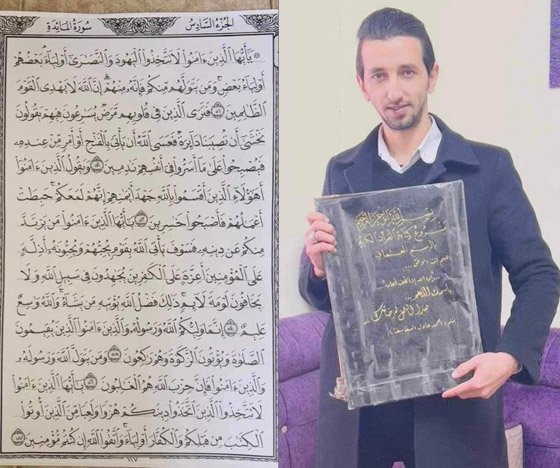 الجُزْءُ السَّادِسُ سُورَةُ المَائِدَةِ
۞ يَٰٓأَيُّهَا ٱلَّذِينَ ءَامَنُوا۟ لَا تَتَّخِذُوا۟ ٱلْيَهُودَ وَٱلنَّصَٰرَىٰٓ أَوْلِيَآءَ بَعْضُهُمْ
أَوْلِيَآءُ بَعْضٍ وَمَن يَتَوَلَّهُم مِّنكُمْ فَإِنَّهُۥ مِنْهُمْ إِنَّ ٱللَّهَ لَا يَهْدِى ٱلْقَوْمَ
ٱلظَّٰلِمِينَ ٥١ فَتَرَى ٱلَّذِينَ فِى قُلُوبِهِم مَّرَضٌ يُسَٰرِعُونَ فِيهِمْ يَقُولُونَ
نَخْشَىٰٓ أَن تُصِيبَنَا دَآئِرَةٌ فَعَسَى ٱللَّهُ أَن يَأْتِىَ بِٱلْفَتْحِ أَوْ أَمْرٍ مِّنْ عِندِهِۦ
فَيُصْبِحُوا۟ عَلَىٰ مَآ أَسَرُّوا۟ فِىٓ أَنفُسِهِمْ نَٰدِمِينَ ٥٢ وَيَقُولُ ٱلَّذِينَ ءَامَنُوٓا۟
أَهَٰٓؤُلَآءِ ٱلَّذِينَ أَقْسَمُوا۟ بِٱللَّهِ جَهْدَ أَيْمَٰنِهِمْ إِنَّهُمْ لَمَعَكُمْ حَبِطَتْ
أَعْمَٰلُهُمْ فَأَصْبَحُوا۟ خَٰسِرِينَ ٥٣ يَٰٓأَيُّهَا ٱلَّذِينَ ءَامَنُوا۟ مَن يَرْتَدَّ
مِنكُمْ عَن دِينِهِۦ فَسَوْفَ يَأْتِى ٱللَّهُ بِقَوْمٍ يُحِبُّهُمْ وَيُحِبُّونَهُۥٓ أَذِلَّةٍ
عَلَى ٱلْمُؤْمِنِينَ أَعِزَّةٍ عَلَى ٱلْكَٰفِرِينَ يُجَٰهِدُونَ فِى سَبِيلِ ٱللَّهِ وَلَا
يَخَافُونَ لَوْمَةَ لَآئِمٍ ذَٰلِكَ فَضْلُ ٱللَّهِ يُؤْتِيهِ مَن يَشَآءُ وَٱللَّهُ وَٰسِعٌ
عَلِيمٌ ٥٤ إِنَّمَا وَلِيُّكُمُ ٱللَّهُ وَرَسُولُهُۥ وَٱلَّذِينَ ءَامَنُوا۟ ٱلَّذِينَ يُقِيمُونَ
ٱلصَّلَوٰةَ وَيُؤْتُونَ ٱلزَّكَوٰةَ وَهُمْ رَٰكِعُونَ ٥٥ وَمَن يَتَوَلَّ ٱللَّهَ وَرَسُولَهُۥ
وَٱلَّذِينَ ءَامَنُوا۟ فَإِنَّ حِزْبَ ٱللَّهِ هُمُ ٱلْغَٰلِبُونَ ٥٦ يَٰٓأَيُّهَا ٱلَّذِينَ ءَامَنُوا۟
لَا تَتَّخِذُوا۟ ٱلَّذِينَ ٱتَّخَذُوا۟ دِينَكُمْ هُزُوًا وَلَعِبًا مِّنَ ٱلَّذِينَ أُوتُوا۟
ٱلْكِتَٰبَ مِن قَبْلِكُمْ وَٱلْكُفَّارَ أَوْلِيَآءَ وَٱتَّقُوا۟ ٱللَّهَ إِن كُنتُم مُّؤْمِنِينَ ٥٧
١١٧
بسم الله الرحمن الرحيم
مشروع كتابة القرآن الكريم
بالرسم العثماني
باسمك اللهم ...